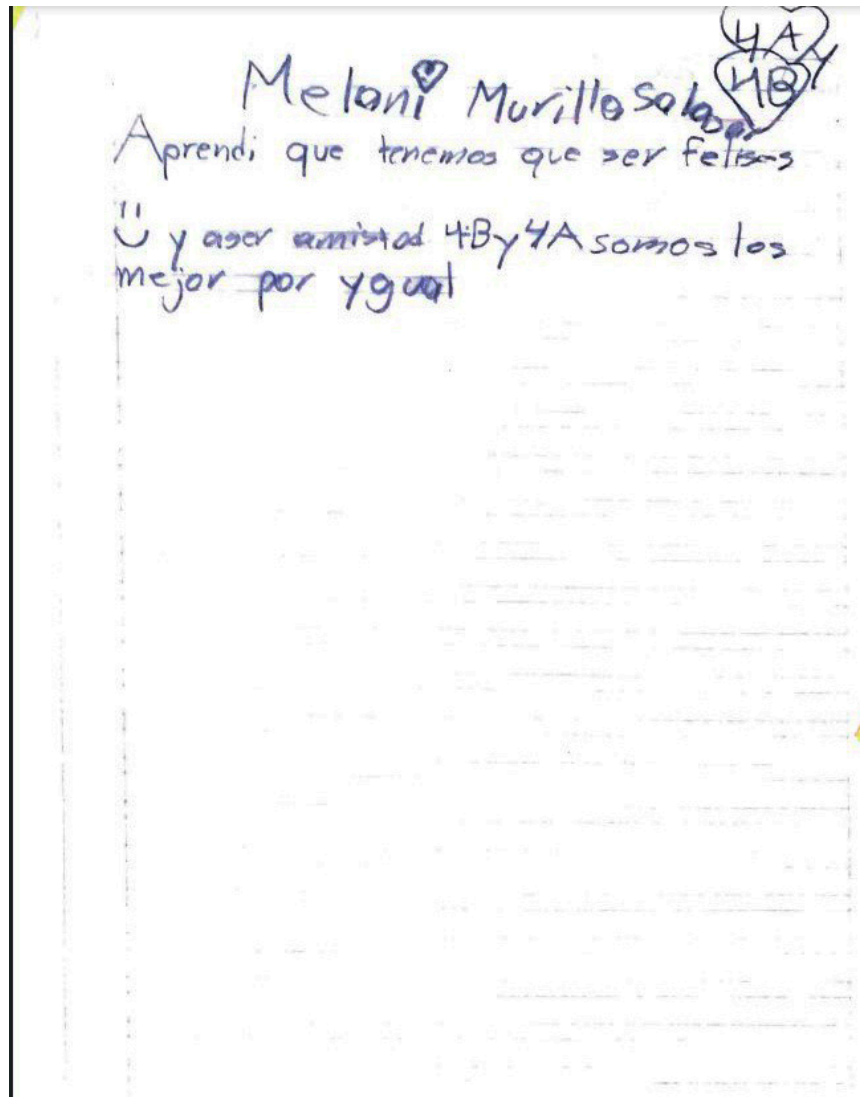 4A y
4B
Melani Murillo Salazar
Aprendi que tenemos que ser felises
y aser amistad 4B y 4A somos los
mejor por ygual